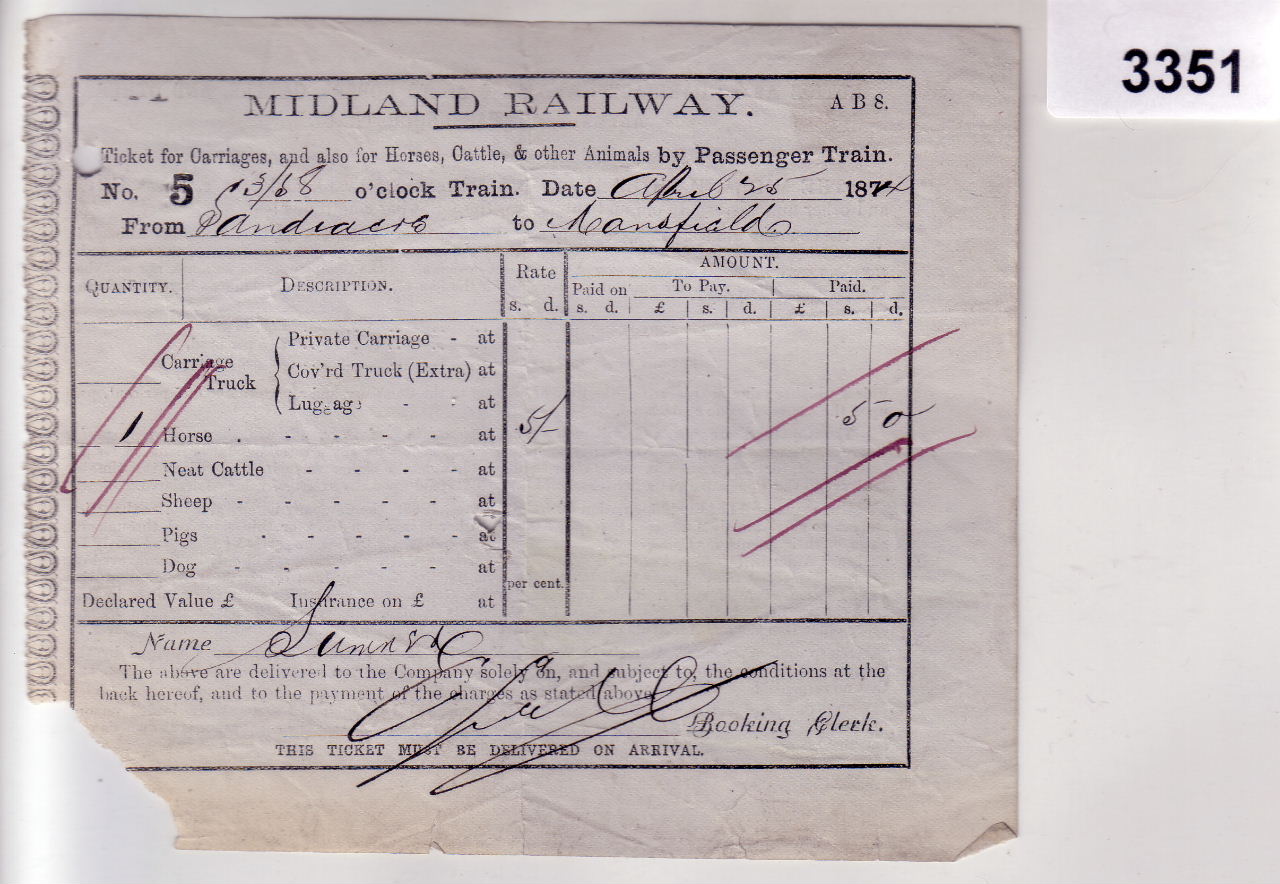 3351
MIDLAND RAILWAY. A B 8.
Ticket for Carriages, and also for Horses, Cattle, & other Animals by Passenger Train.
No. 5 3/58 o'clock Train. Date April 25 1874
From to Mansfield
QUANTITY. DESCRIPTION. Rate AMOUNT.
Paid on To Pay. Paid.
s. d. s. d. £ s. d. £ s. d.
Carriage Truck { Private Carriage - at
Cov'rd Truck (Extra) at
Luggage - - at
1 Horse . - - - - - at 5/- 5 0
Neat Cattle - - - - at
Sheep - - - - - - at
Pigs - - - - - at
Dog - - - - - at
per cent.
Declared Value £ Insurance on £ at
Name Sumner
The above are delivered to the Company solely on, and subject to, the conditions at the
back hereof, and to the payment of the charges as stated above.
Booking Clerk.
THIS TICKET MUST BE DELIVERED ON ARRIVAL.